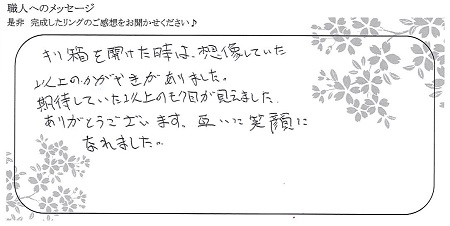 職人へのメッセージ
是非 完成したリングのご感想をお聞かせください♪
キリ箱を開けた時は、想像していた
以上のかがやきがありました。
期待していた以上のモク目が見えました。
ありがとうございます、互いに笑顔に
なれました。